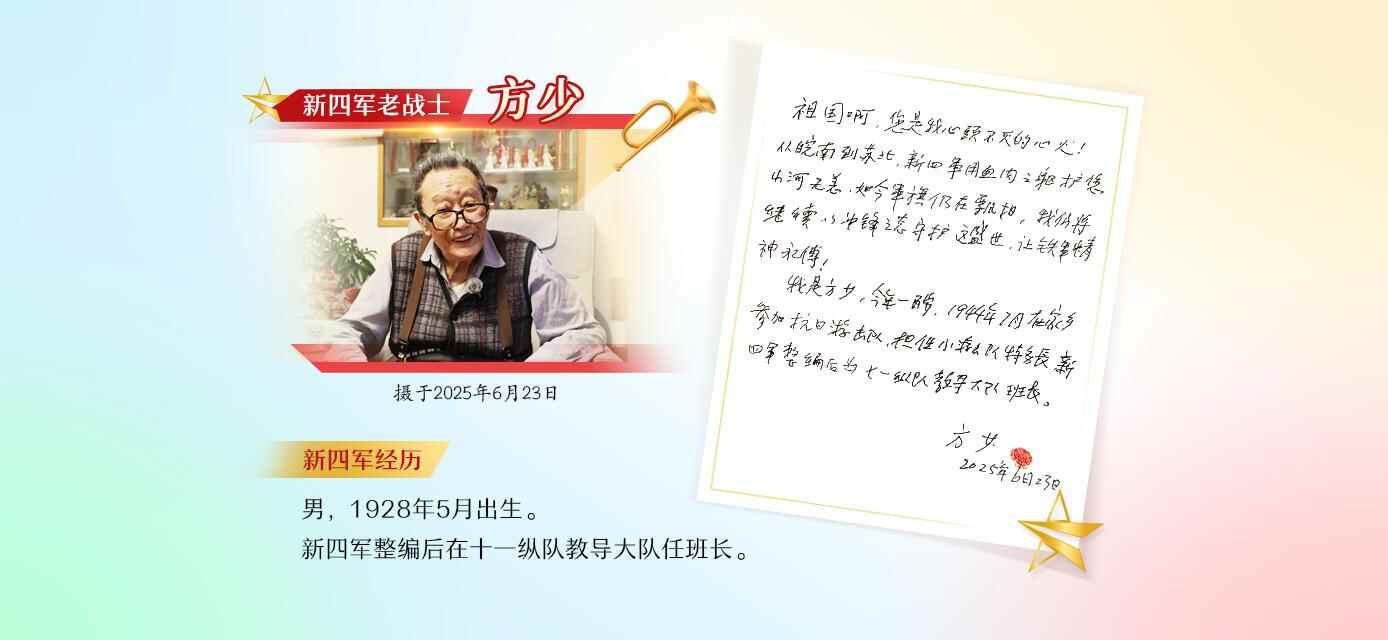 新四军老战士
方少
摄于2025年6月23日
新四军经历
男，1928年5月出生。
新四军整编后在十一纵队教导大队任班长。
祖国啊，您是我心头不灭的心火！
从皖南到苏北，新四军用血肉之躯护您
山河无恙，如今军旗仍在飘扬，我仍将
继续以冲锋之态守护这盛世，让铁军精
神永传！
我是方少，今年一岁，1944年7月在家乡
参加抗日游击队，担任小队长，新
四军整编后为十一纵队教导大队班长。
方少
2025年6月23日